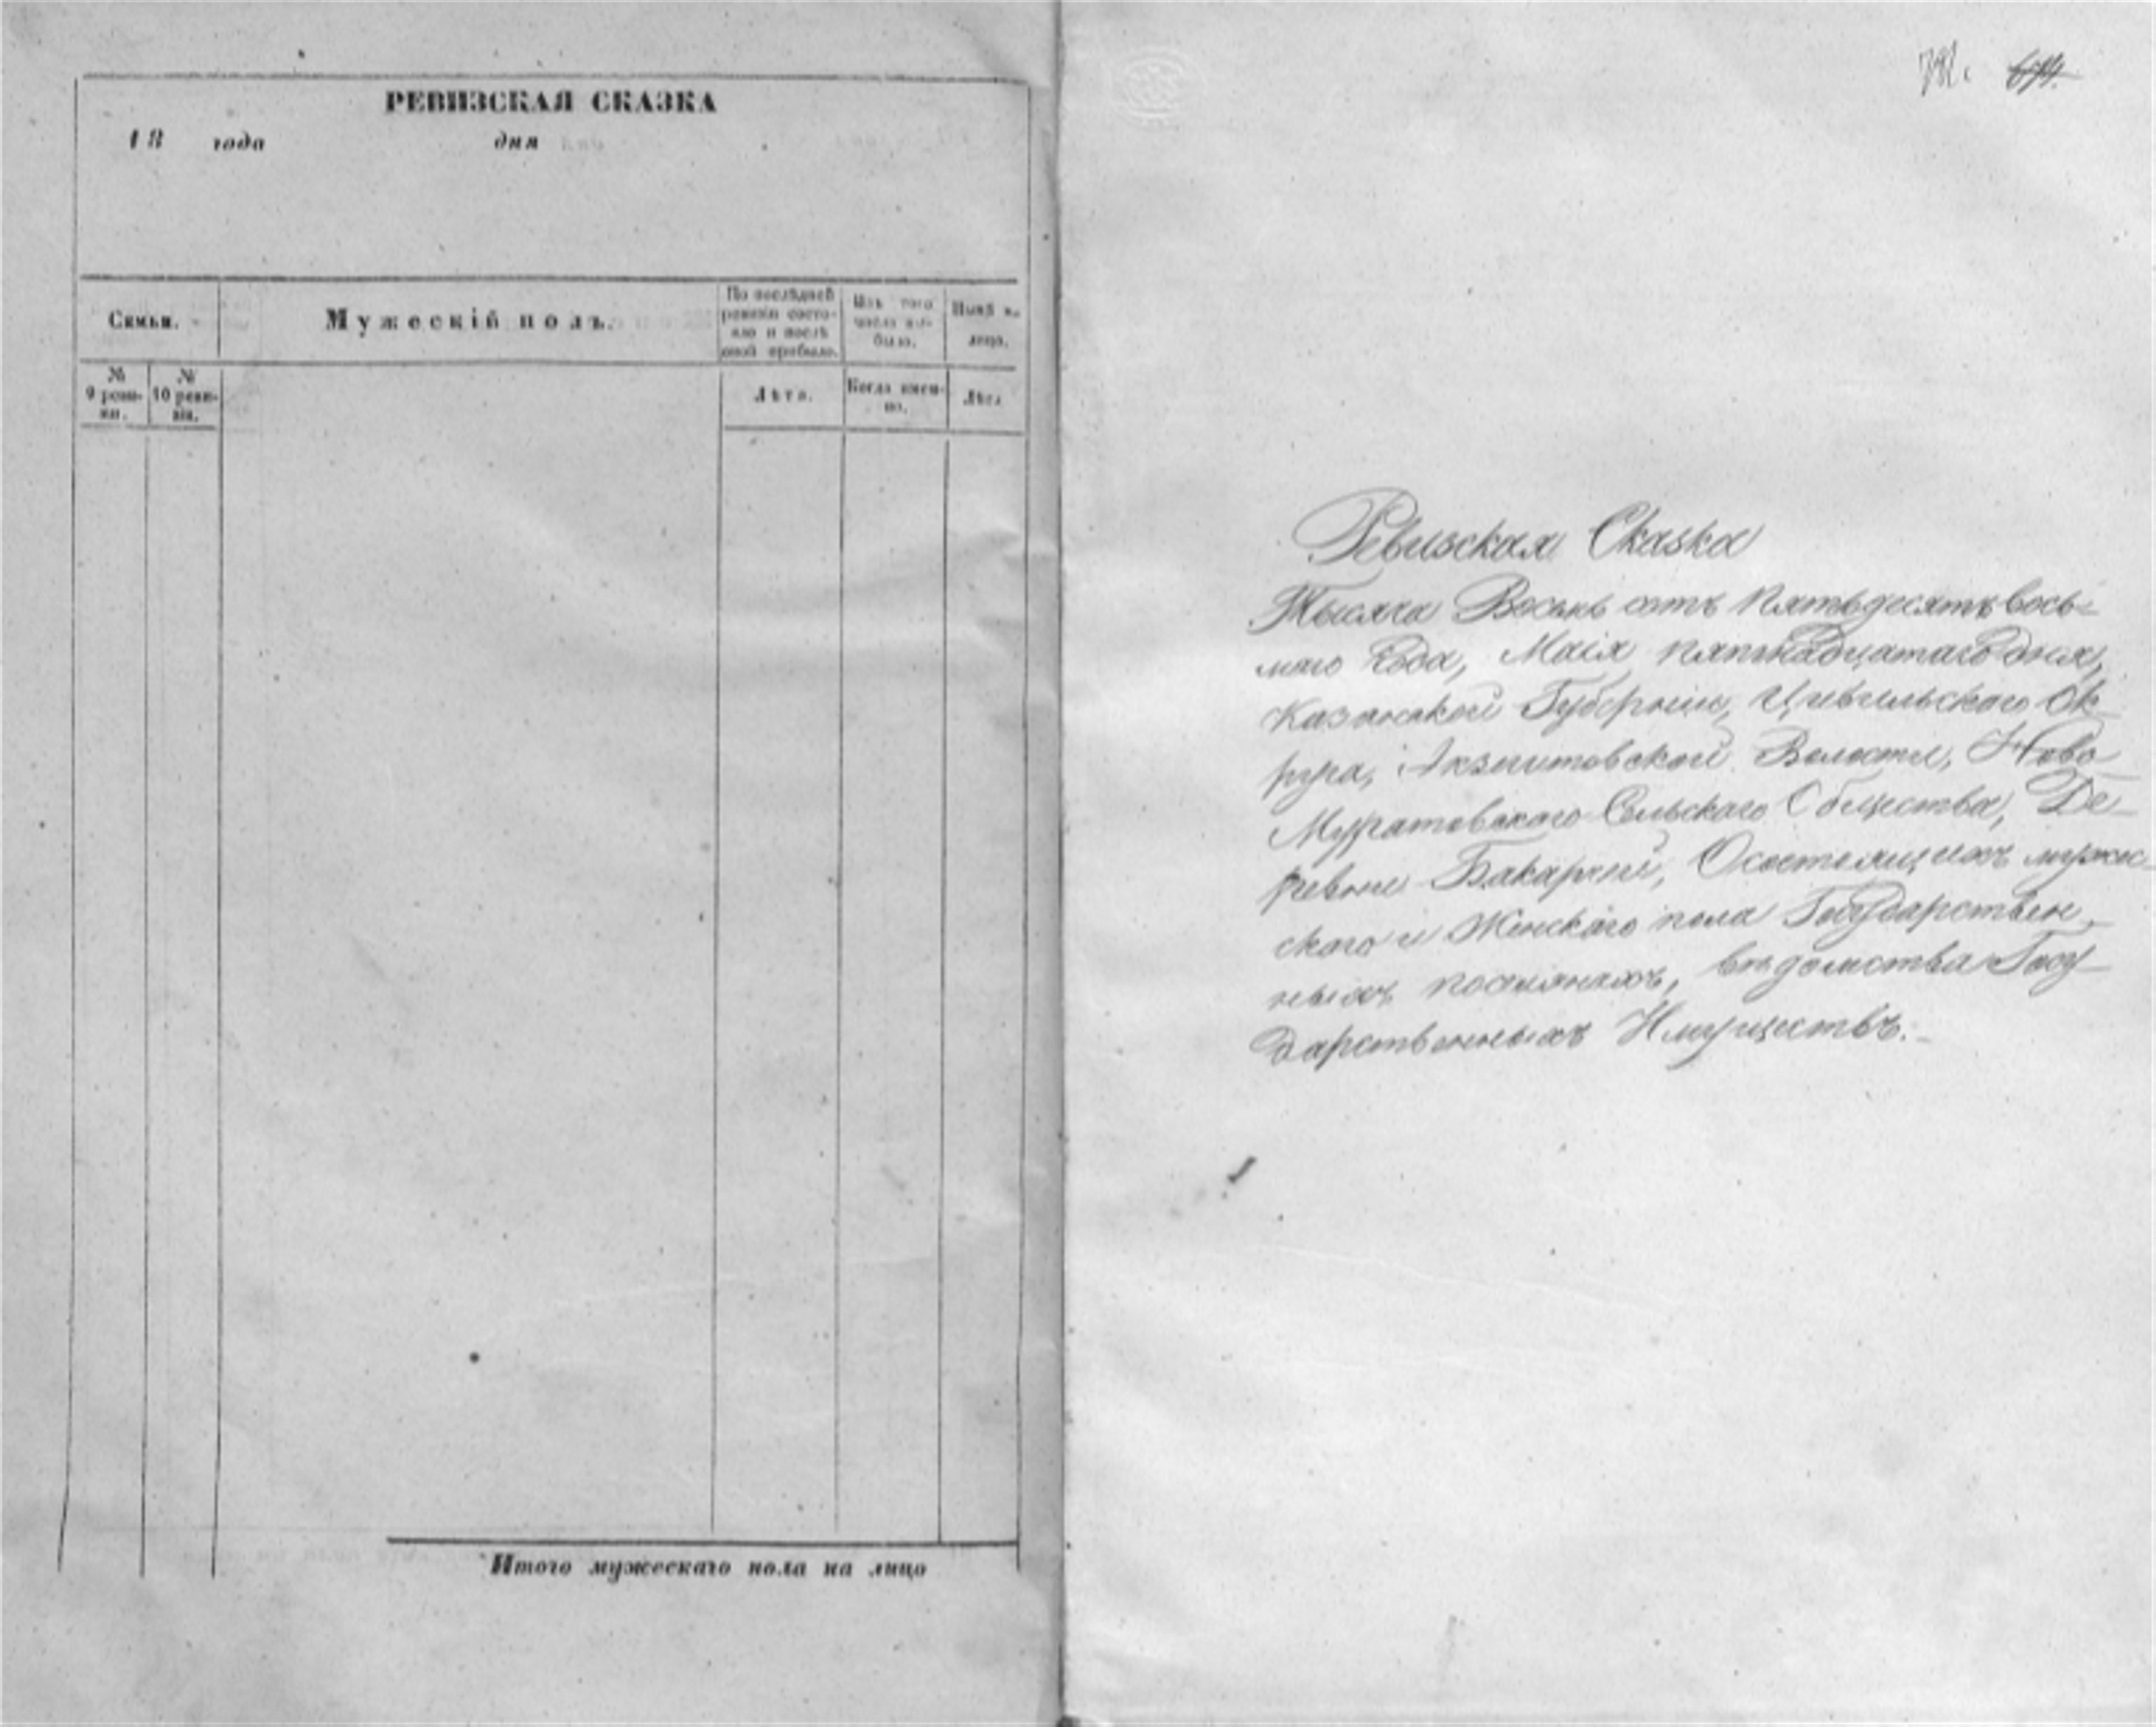 РЕВИЗСКАЯ СКАЗКА
18 года дня
Семьи.
Мужескій полъ.
По послѣдней ревизіи состояло и послѣ оной прибыло.
Изъ того числа выбыло.
Нынѣ на лицо.
№ 9 ревизіи.
№ 10 ревизіи.
Лѣта.
Когда именно.
Лѣта
Итого мужескаго пола на лицо
Ревизская Сказка
Тысяча Восемь сотъ Пятьдесятъ вось-
маго Года, Маія пятнадцатаго дня,
Казанской Губерніи, Цивильскаго Ок-
руга, Акзегитовской Волости, Ново-
Муратовскаго Сельскаго Общества, Де-
ревни Бакарчей, О состоящихъ мужес-
скаго и Женскаго пола Государствен-
ныхъ поселянахъ, вѣдомства Госу-
дарственныхъ Имуществъ.-